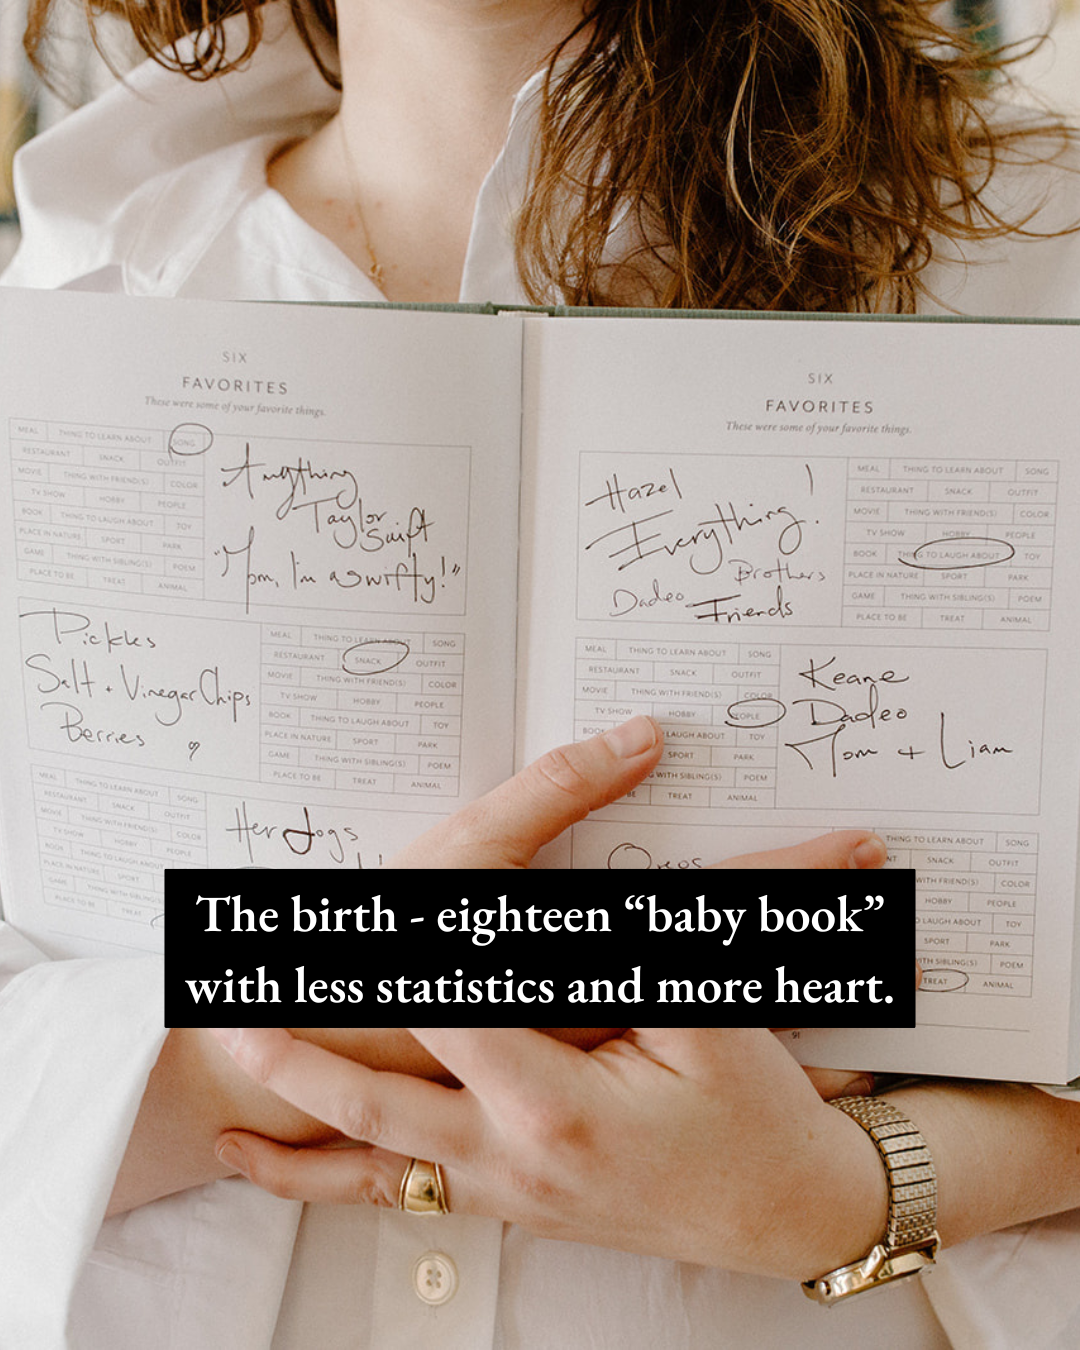 SIX
FAVORITES
These were some of your favorite things.
MEAL THING TO LEARN ABOUT SONG
RESTAURANT SNACK OUTFIT
MOVIE THING WITH FRIEND(S) COLOR
TV SHOW HOBBY PEOPLE
BOOK THING TO LAUGH ABOUT TOY
PLACE IN NATURE SPORT PARK
GAME THING WITH SIBLING(S) POEM
PLACE TO BE TREAT ANIMAL
Anything
Taylor
Swift
"Mom, I'm a swifty!"
Pickles
Salt + Vinegar Chips
Berries
MEAL THING TO LEARN ABOUT SONG
RESTAURANT SNACK OUTFIT
MOVIE THING WITH FRIEND(S) COLOR
TV SHOW HOBBY PEOPLE
BOOK THING TO LAUGH ABOUT TOY
PLACE IN NATURE SPORT PARK
GAME THING WITH SIBLING(S) POEM
PLACE TO BE TREAT ANIMAL
MEAL THING TO LEARN ABOUT SONG
RESTAURANT SNACK OUTFIT
MOVIE THING WITH FRIEND(S) COLOR
TV SHOW HOBBY PEOPLE
BOOK THING TO LAUGH ABOUT
PLACE IN NATURE SPORT
GAME THING WITH SIBLING(S)
PLACE TO BE TREAT
Her dogs
SIX
FAVORITES
These were some of your favorite things.
Hazel
Everything!
Brothers
Dadeo
Friends
MEAL THING TO LEARN ABOUT SONG
RESTAURANT SNACK OUTFIT
MOVIE THING WITH FRIEND(S) COLOR
TV SHOW HOBBY PEOPLE
BOOK THING TO LAUGH ABOUT TOY
PLACE IN NATURE SPORT PARK
GAME THING WITH SIBLING(S) POEM
PLACE TO BE TREAT ANIMAL
MEAL THING TO LEARN ABOUT SONG
RESTAURANT SNACK OUTFIT
MOVIE THING WITH FRIEND(S) COLOR
TV SHOW HOBBY PEOPLE
LAUGH ABOUT TOY
SPORT PARK
WITH SIBLING(S) POEM
BE TREAT ANIMAL
Keane
Dadeo
Mom + Liam
Oreos
THING TO LEARN ABOUT SONG
SNACK OUTFIT
WITH FRIEND(S) COLOR
HOBBY PEOPLE
LAUGH ABOUT TOY
SPORT PARK
WITH SIBLING(S) POEM
TREAT ANIMAL
The birth - eighteen “baby book”
with less statistics and more heart.